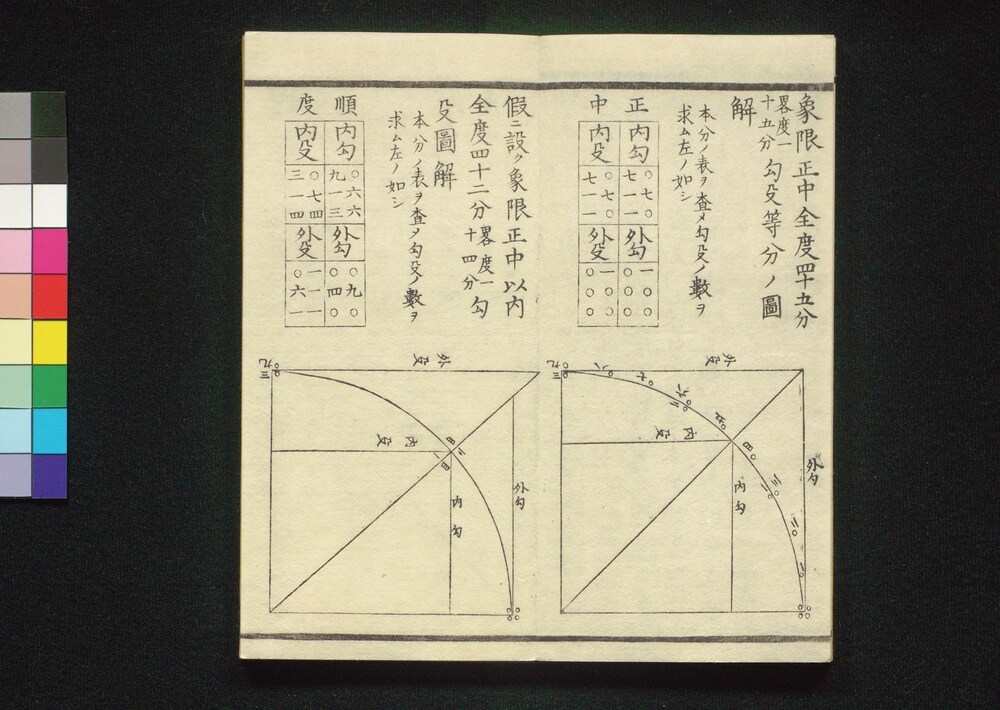 象限正中全度四十五分
畧度一十五分勾殳等分ノ圖
解
本分ノ表ヲ査メ勾殳ノ數ヲ
求ム左ノ如シ
正中
内勾
○七○
七一一
外勾
一○○
○○○
内殳
○七○
七一一
外殳
一○○
○○○
外殳
内殳
外勾
内勾
假ニ設ク象限正中以内
全度四十二分畧度一十四分勾
殳圖解
本分ノ表ヲ査メ勾殳ノ數ヲ
求ム左ノ如シ
順度
内勾
○六六
九一三
外勾
○九○
○四○
内殳
○七四
三一四
外殳
一一一
○六一
外殳
内殳
外勾
内勾